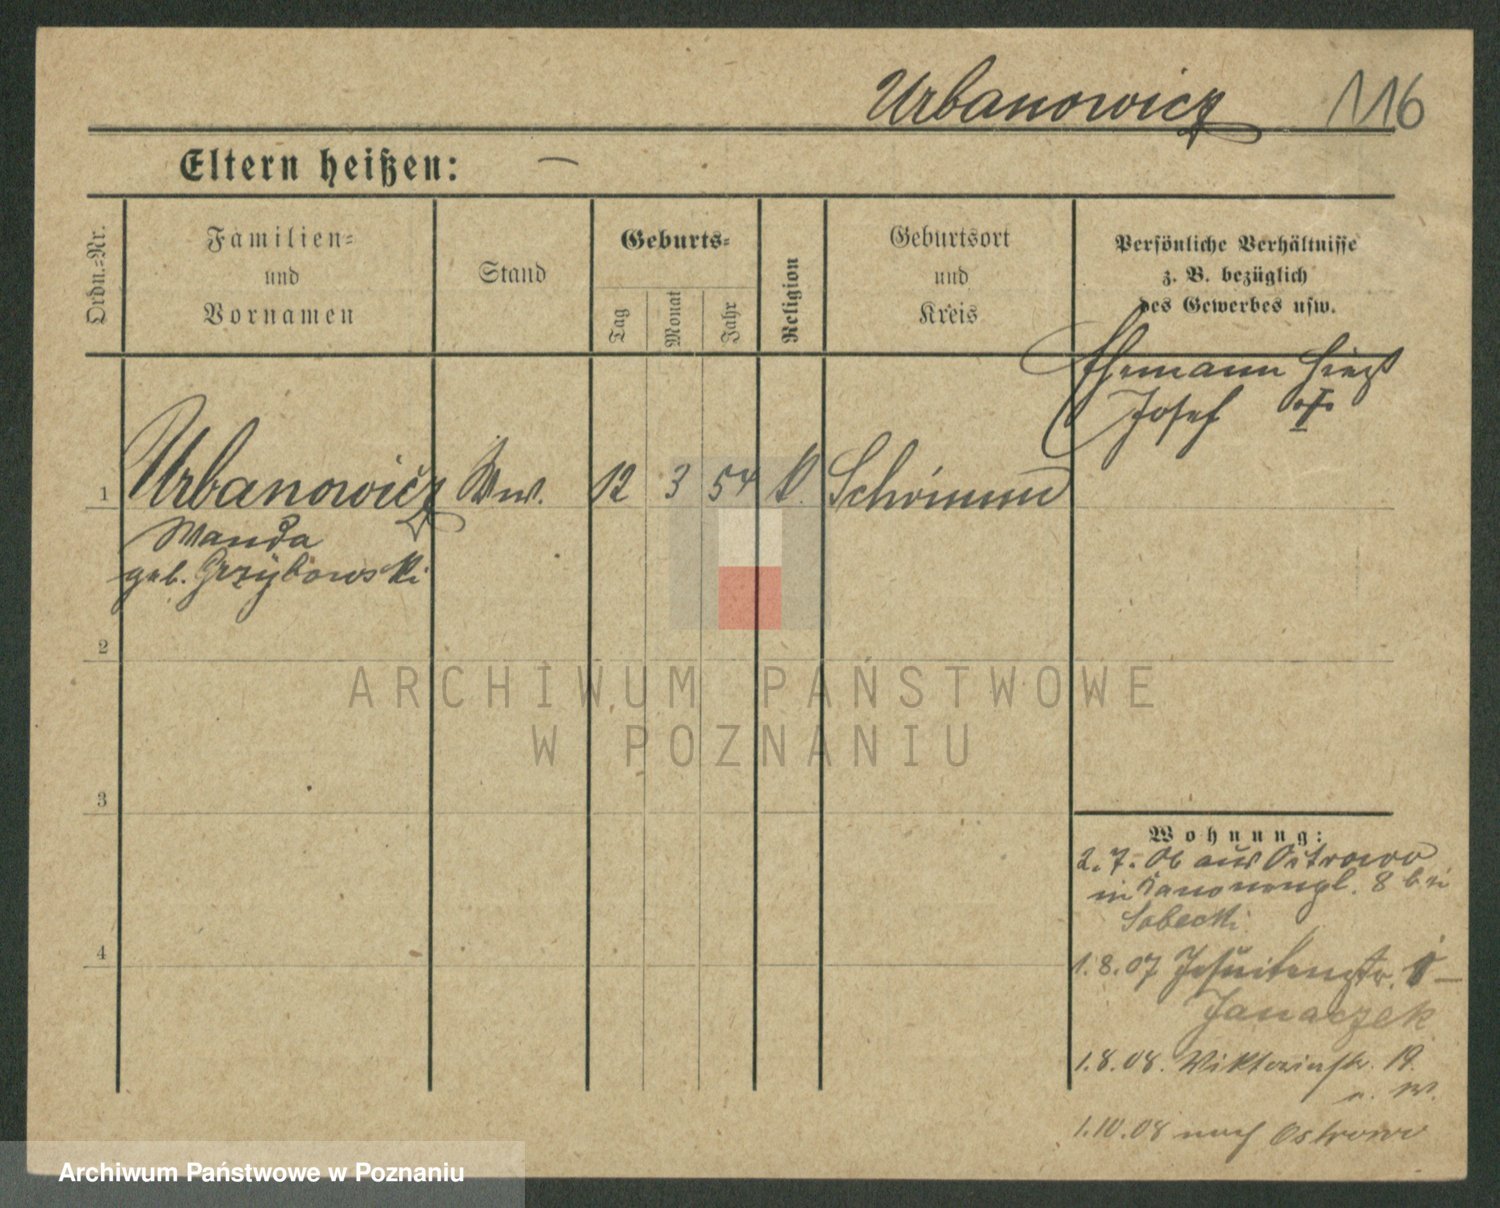 Urbanowicz 116
Eltern heißen: —
Ordn.-Nr.
Familien-
und
Vornamen
Stand
Geburts-
Tag
Monat
Jahr
Religion
Geburtsort
und
Kreis
Persönliche Verhältnisse
z. B. bezüglich
des Gewerbes usw.
Ehemann hieß
Josef
1 Urbanowicz Ww. 12 3 54 k. Schrimm
Wanda
geb. Grzybowski
2
3
4
Wohnung:
2.7. 06 aus Ostrowo
in Kanonengl. 8 bei
Sobecki
1.8.07 Jesuitenstr.
Janaczek
1.8.08. Viktoriastr. 19.
1.10.08 nach Ostrowo
ARCHIWUM PAŃSTWOWE
W POZNANIU
Archiwum Państwowe w Poznaniu